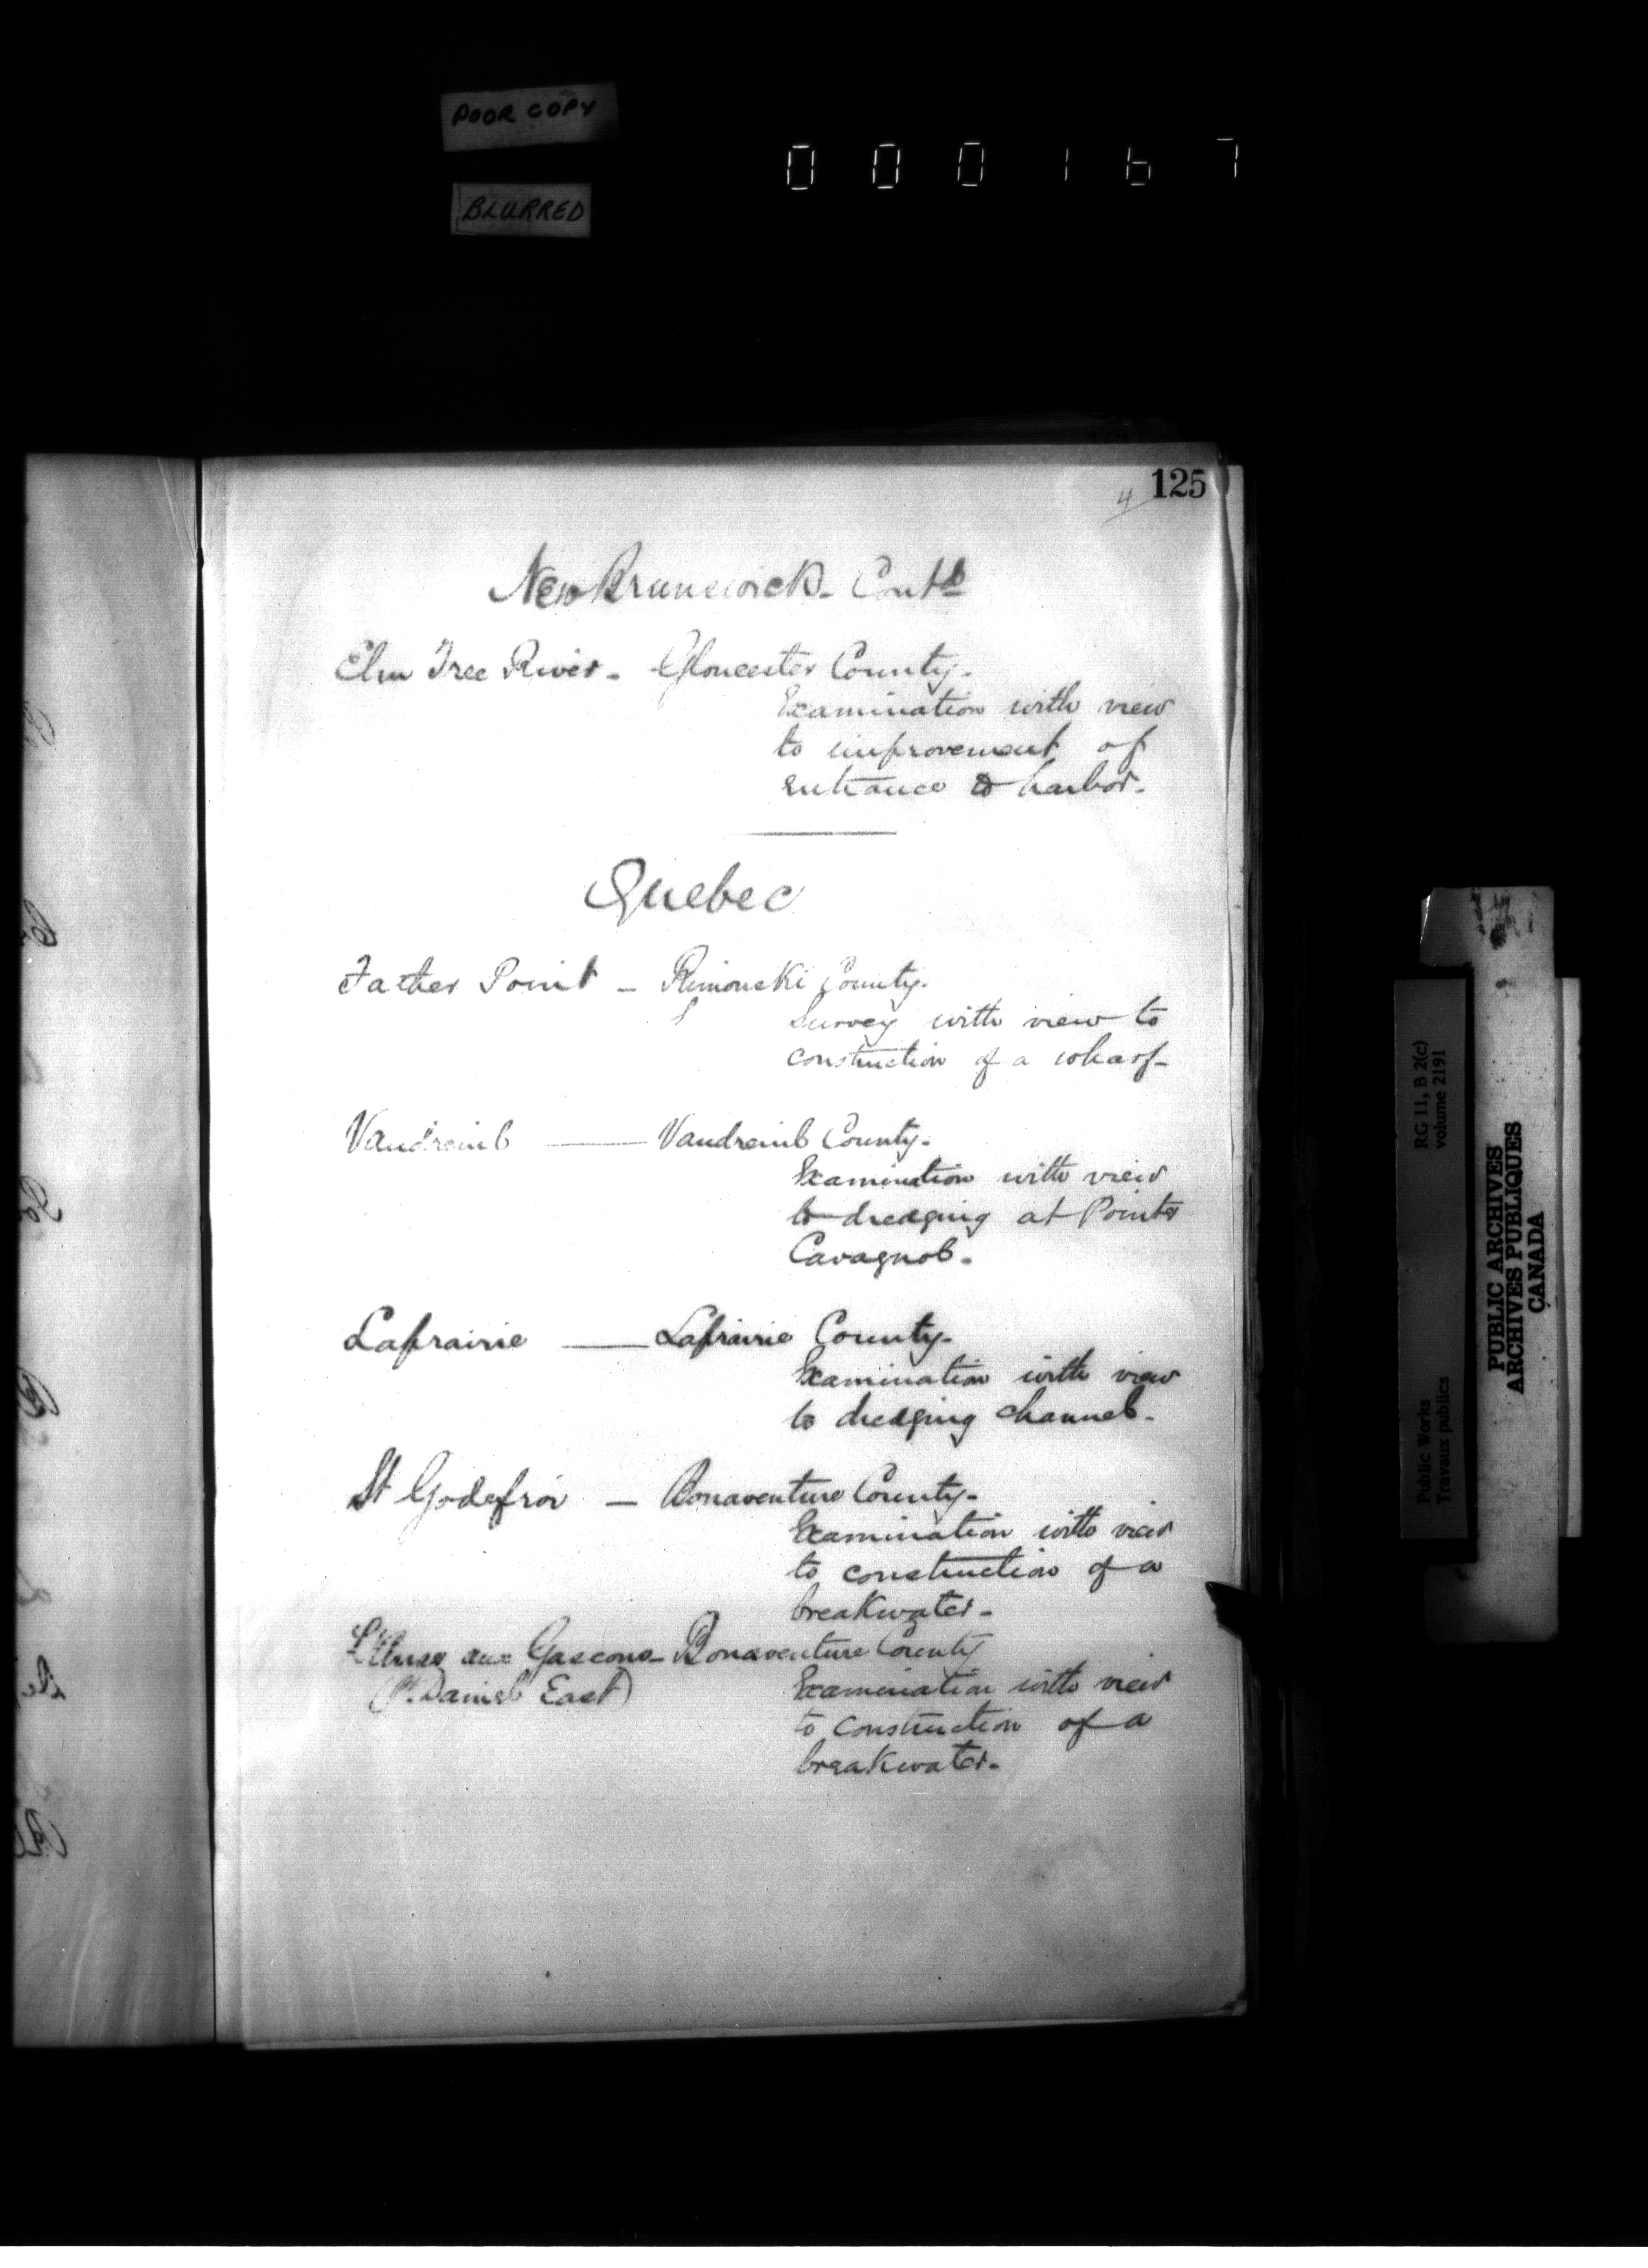 POOR COPY
BLURRED
000167
4 125
New Brunswick - Contd
Elm Tree River - Gloucester County.
Examination with view
to improvement of
entrance to harbor.
Quebec
Father Point - Rimouski County.
Survey with view to
construction of a wharf -
Vaudreuil — Vaudreuil County.
Examination with view
to dredging at Pointe
Cavagnol.
Laprairie — Laprairie County.
Examination with view
to dredging channel.
St Godefroi — Bonaventure County.
Examination with view
to construction of a
breakwater.
L'Anse aux Gascons - Bonaventure County
(Pt. Daniel East)
Examination with view
to construction of a
breakwater.
RG 11, B 2(c)
volume 2191
Public Works
Travaux publics
PUBLIC ARCHIVES
ARCHIVES PUBLIQUES
CANADA